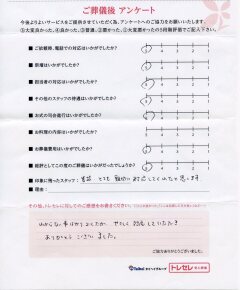 ご葬儀後 アンケート
今後よりよいサービスをご提供させていただく為、アンケートへのご協力をお願いいたします。
⑤大変良かった、④良かった、③普通、②悪かった、①大変悪かったの5段階評価でご記入下さい。
■ ご依頼時、電話での対応はいかがでしたか?
■ 祭壇はいかがでしたか?
■ 担当者の対応はいかがでしたか?
■ その他のスタッフの待遇はいかがでしたか?
■ お式の司会進行はいかがでしたか?
■ お料理の内容はいかがでしたか?
■ お葬儀費用はいかがでしたか?
■ 総評としてこの度のご葬儀はいかがだったでしょうか?
■ 印象に残ったスタッフ: とても 親切に 対応してくれたと思います
■ 理由:
その他、トレセレに対してのご感想をお書きください。
わからない事ばかりでしたが、やさしく 対応していただき
ありがとう ございました。
ご協力ありがとうございました。
タイヘイグループ トレセレ